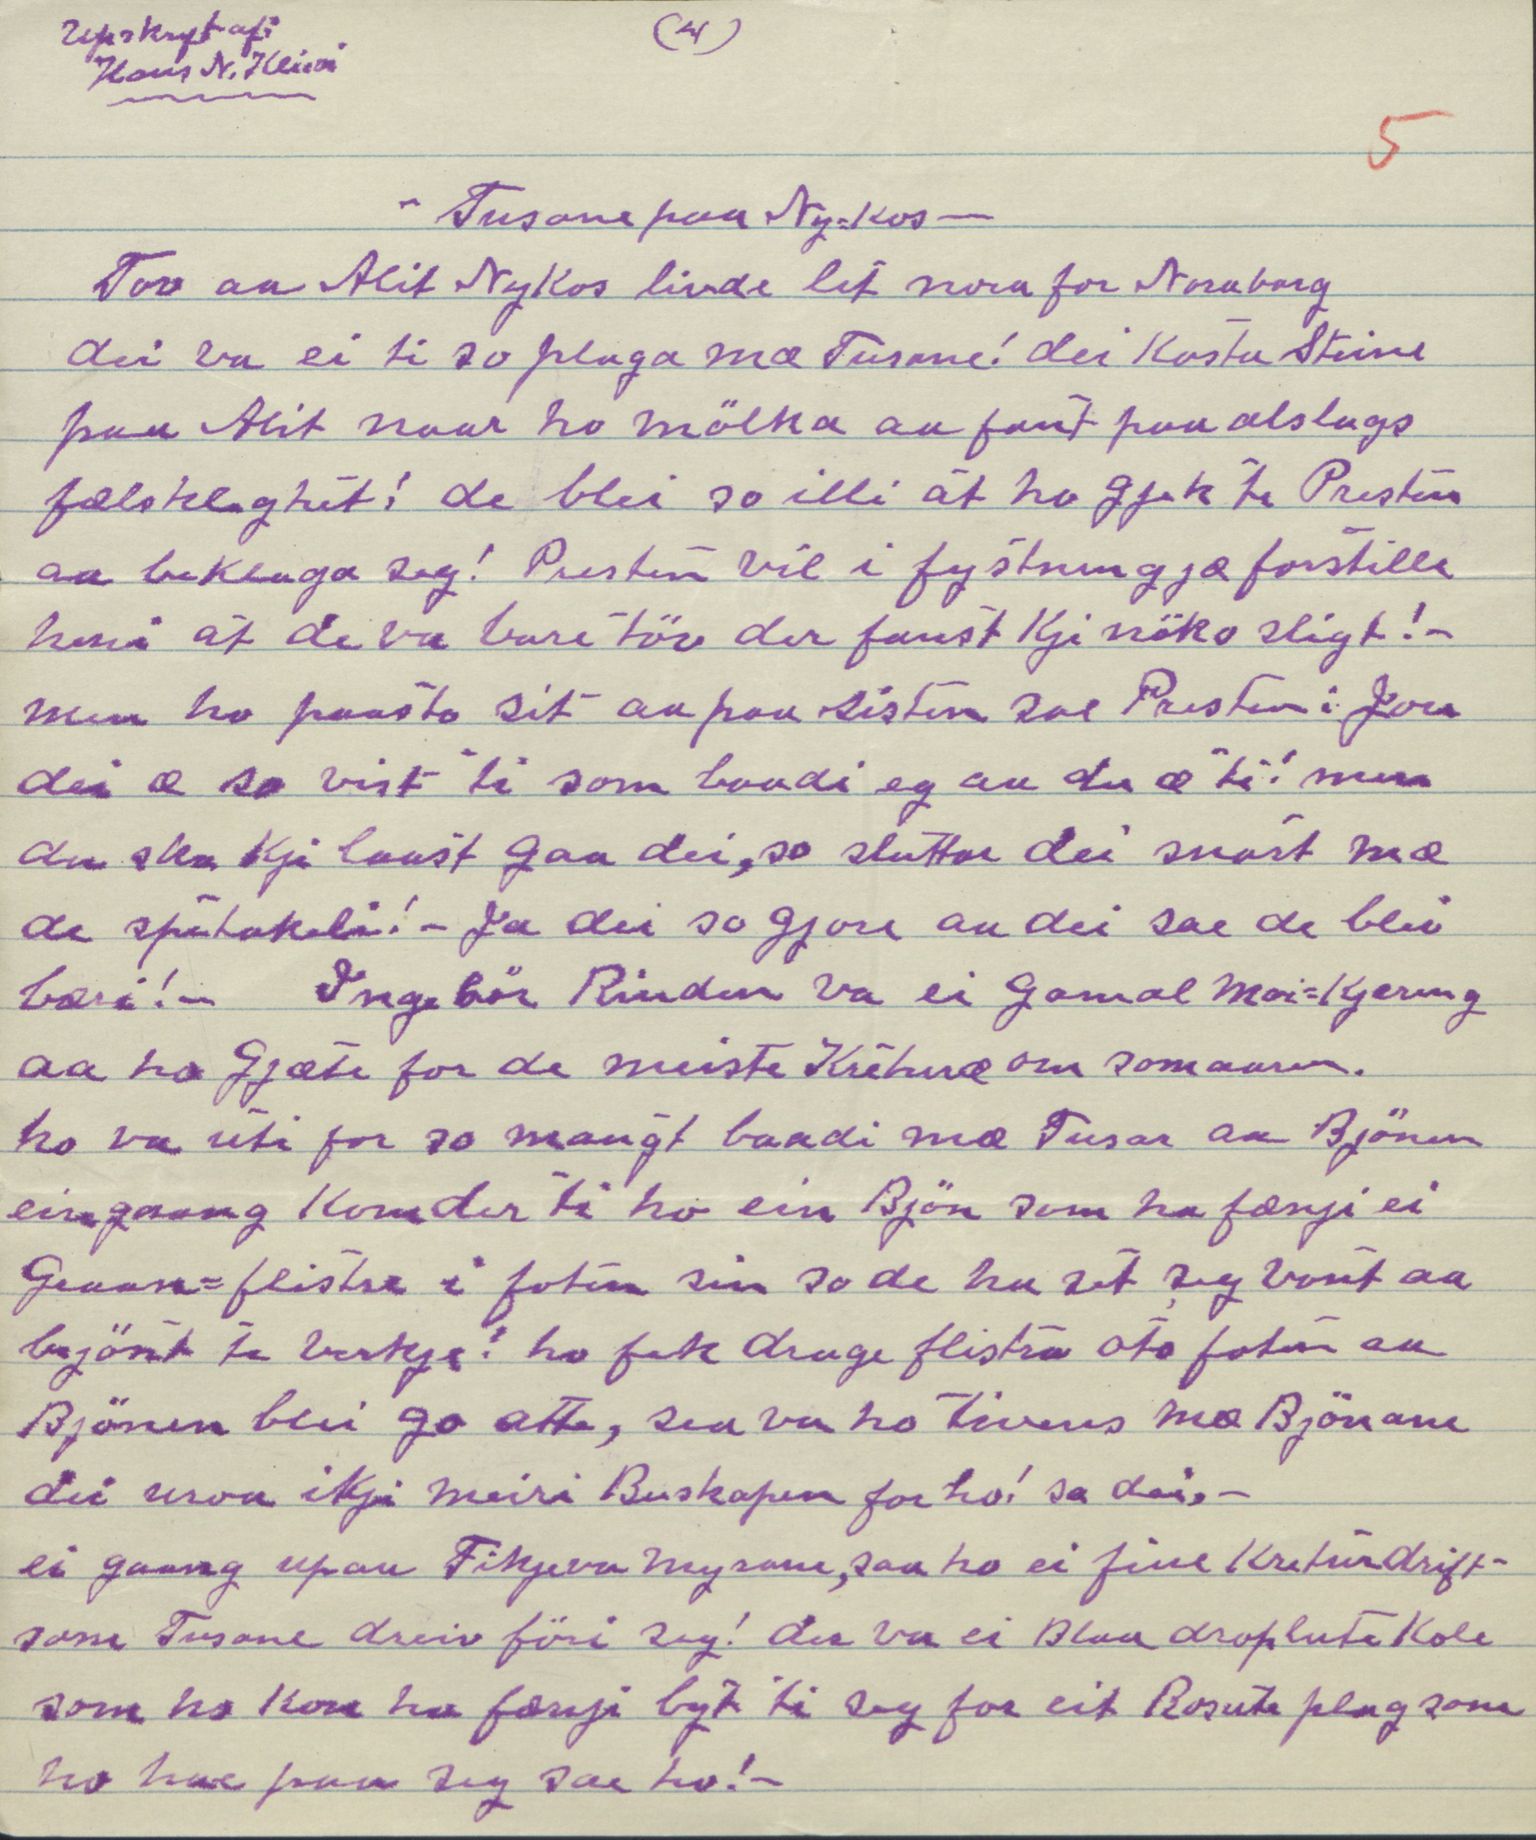 Upskryft afi
(4)
Hans N. Kleivi
5
" Tusane paa Ny=Kos —
Tov aa Alit NyKos livde let nora for Noraborg
dei va ei ti so plaga mæ Tusane! dei Kasta Steine
paa Alit naar ho mölka aa fant paa alslags
fælskleghet! de blei so illi at ho gjek te Presten
aa beklaga seg! Presten vil i fystnungjæ forstille
heni at de va bare töv der fanst Kji nöko sligt! -
men ho paasto sit aa paa sisten sae Presten: Jou
dei æ so vist ti som baadi eg aa du æ ti! men
du ska Kji laast gaa dei, so sluttar dei snart mæ
de spetakeli! - Ja dei so gjore aa dei sae de blei
bæri! - Ingebör Rinden va ei Gamal Moi=Kjerung
aa ho Gjæte for de meiste Kreturæ om somaaren.
ho va uti for so mangt baadi mæ Tusar aa Björnen
ein gaang Kom der ti ho ein Bjön som ha fænji ei
Graan=flistre i foten sin so de ha set seg vont aa
byjönt te verkje! ho fek drage flistra oto foten aa
Bjönen blei go atte, sea va ho tivens mæ Bjönane
dei urva ikji meiri Buskapen for ho! sa dei, -
ei gaang upaa Fikjeva Myrane, saa ho ei fine Kreturdrift -
som Tusane dreiv föri seg! der va ei Blaa dropluta Kole
som ho Kou ha fænji byt ti seg for eit Rosute plag som
ho hae paa seg sae ho! -